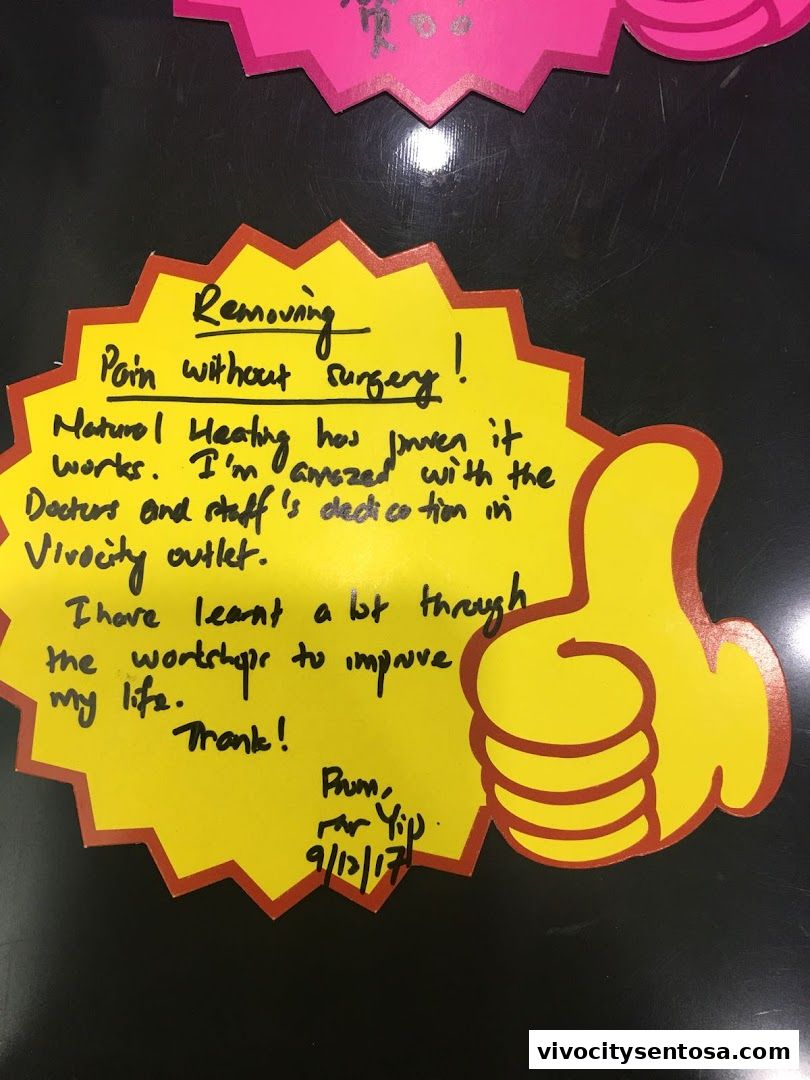 Removing
Pain without surgery!
Natural Healing has proven it
works. I'm amazed with the
Doctors and staff's dedication in
Vivocity outlet.
I have learnt a lot through
the workshops to improve
my life.
Thank!
From,
Mr Yip.
9/12/17
vivocitysentosa.com